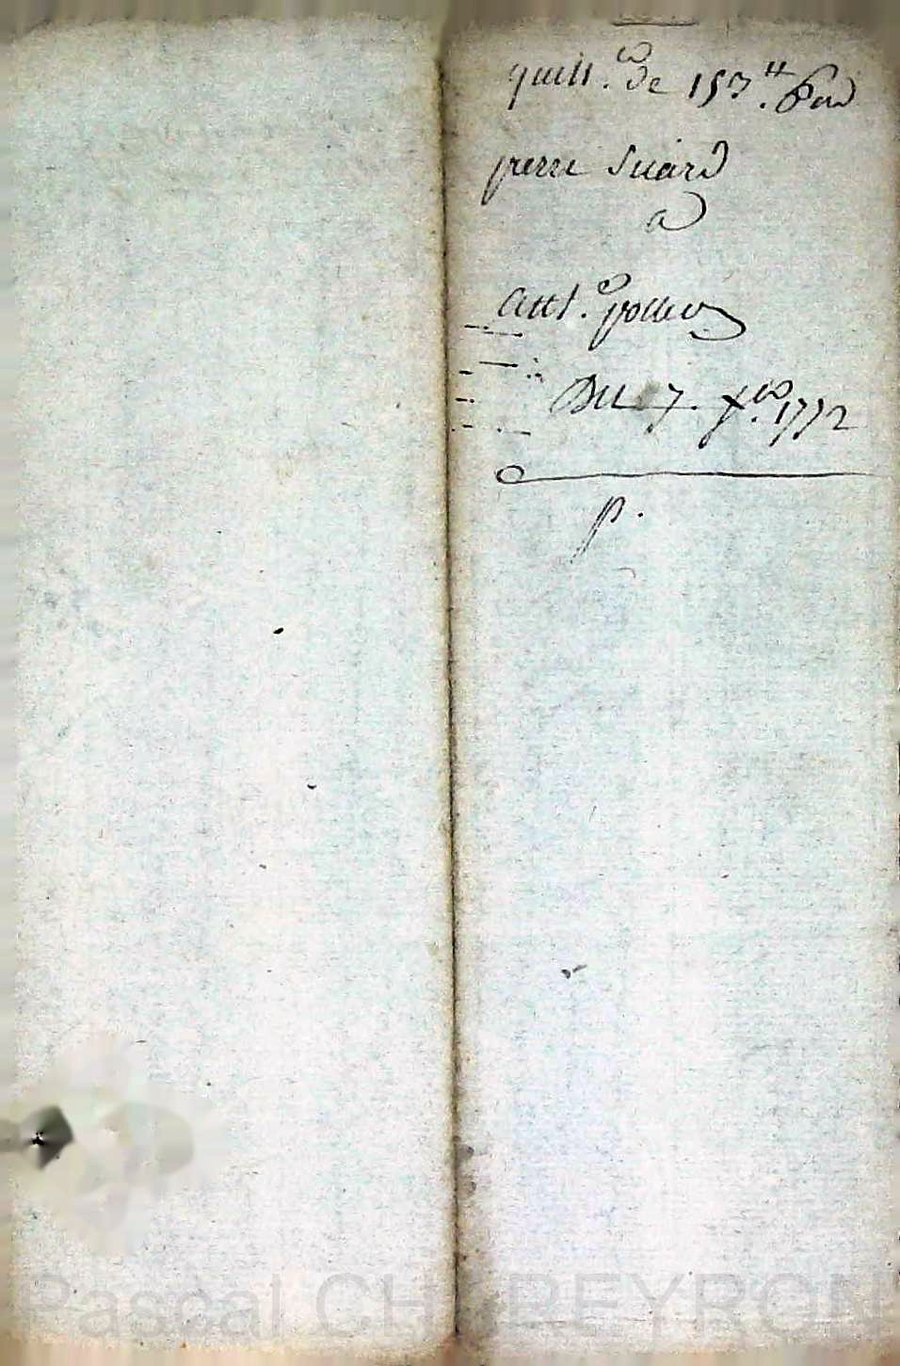 quitt.ce de 157 ₶. par
pierre Suard
a
Ant.e pollier
Du 7. xbre. 1772
p.
Pascal CHAREYRON